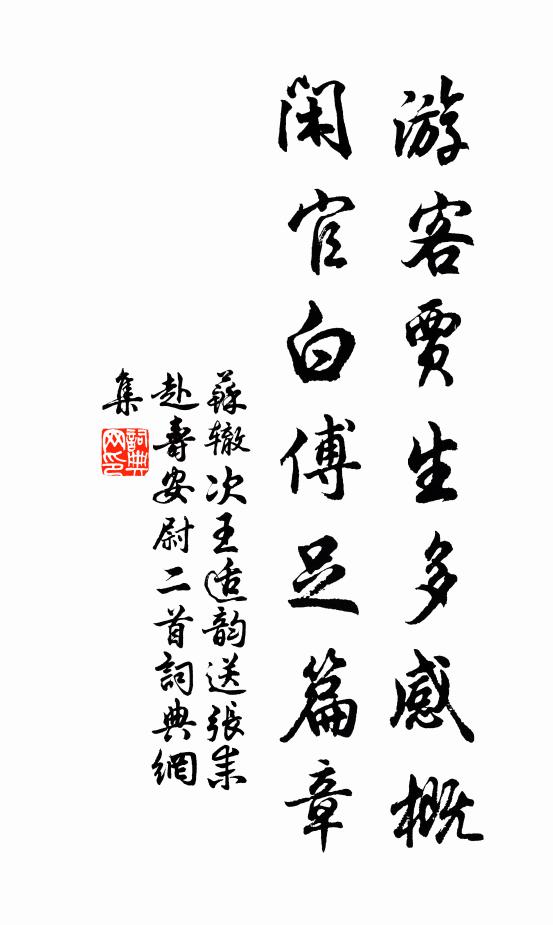 游客賈生多感概
閑官白傅足篇章
蘇辙次王适韵送張耒
赴壽安尉二首詞典網
集
詞典网印